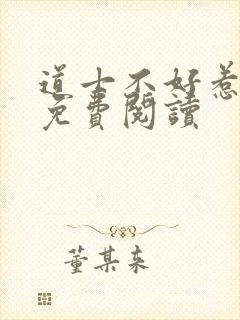 道士不好惹
免費閱讀
董某未